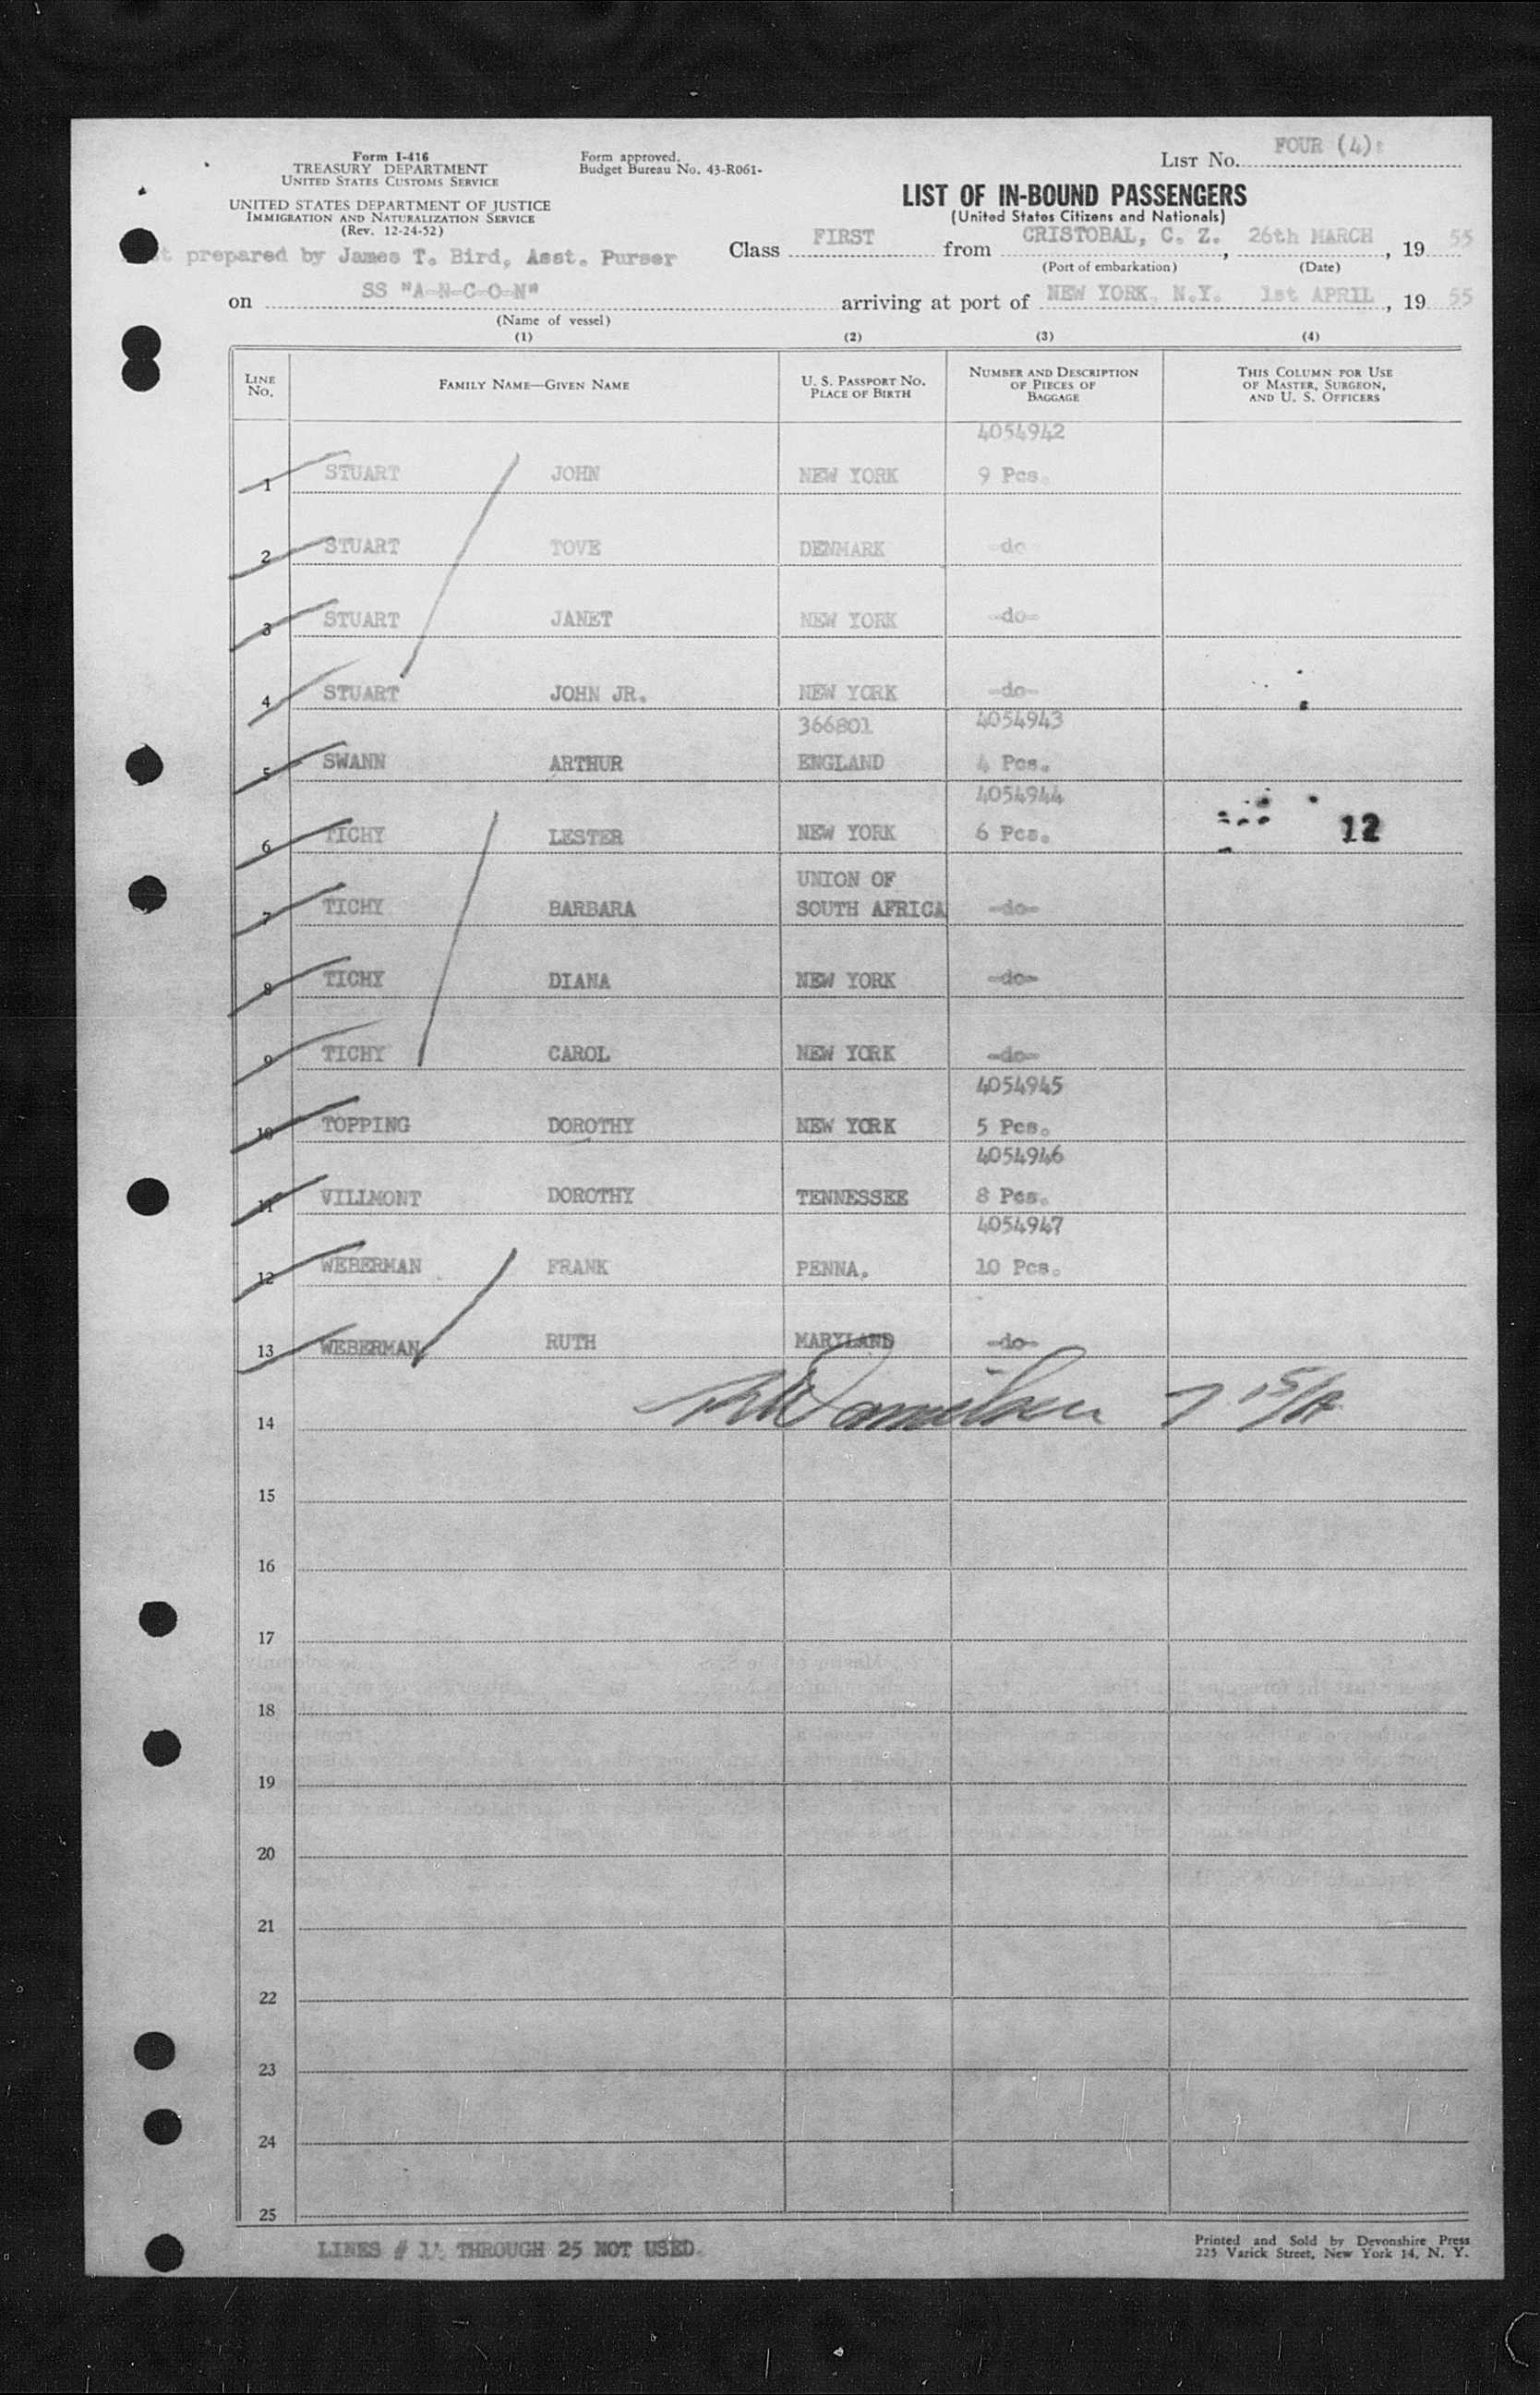 Form I-416
TREASURY DEPARTMENT
UNITED STATES CUSTOMS SERVICE
UNITED STATES DEPARTMENT OF JUSTICE
IMMIGRATION AND NATURALIZATION SERVICE
(Rev. 12-24-52)
Form approved.
Budget Bureau No. 43-R061-
LIST NO. FOUR (4)
LIST OF IN-BOUND PASSENGERS
(United States Citizens and Nationals)
prepared by James T. Bird, Asst. Purser
Class FIRST from CRISTOBAL, C. Z., 26th MARCH, 19 55
(Port of embarkation) (Date)
on SS "A-N-C-O-N" arriving at port of NEW YORK, N.Y. 1st APRIL, 19 55
(Name of vessel)
(1) (2) (3) (4)
LINE NO. FAMILY NAME—GIVEN NAME U. S. PASSPORT NO. PLACE OF BIRTH NUMBER AND DESCRIPTION OF PIECES OF BAGGAGE THIS COLUMN FOR USE OF MASTER, SURGEON, AND U. S. OFFICERS
4054942
1 STUART JOHN NEW YORK 9 Pcs.
2 STUART TOVE DENMARK -do-
3 STUART JANET NEW YORK -do-
4 STUART JOHN JR. NEW YORK -do-
366801 4054943
5 SWANN ARTHUR ENGLAND 4 Pcs.
4054944
6 TICHY LESTER NEW YORK 6 Pcs. 12
UNION OF
7 TICHY BARBARA SOUTH AFRICA -do-
8 TICHY DIANA NEW YORK -do-
9 TICHY CAROL NEW YORK -do-
4054945
10 TOPPING DOROTHY NEW YORK 5 Pcs.
4054946
11 VILLMONT DOROTHY TENNESSEE 8 Pcs.
4054947
12 WEBERMAN FRANK PENNA. 10 Pcs.
13 WEBERMAN RUTH MARYLAND -do-
14
15
16
17
18
19
20
21
22
23
24
25
LINES # 14 THROUGH 25 NOT USED.
Printed and Sold by Devonshire Press
225 Varick Street, New York 14, N. Y.